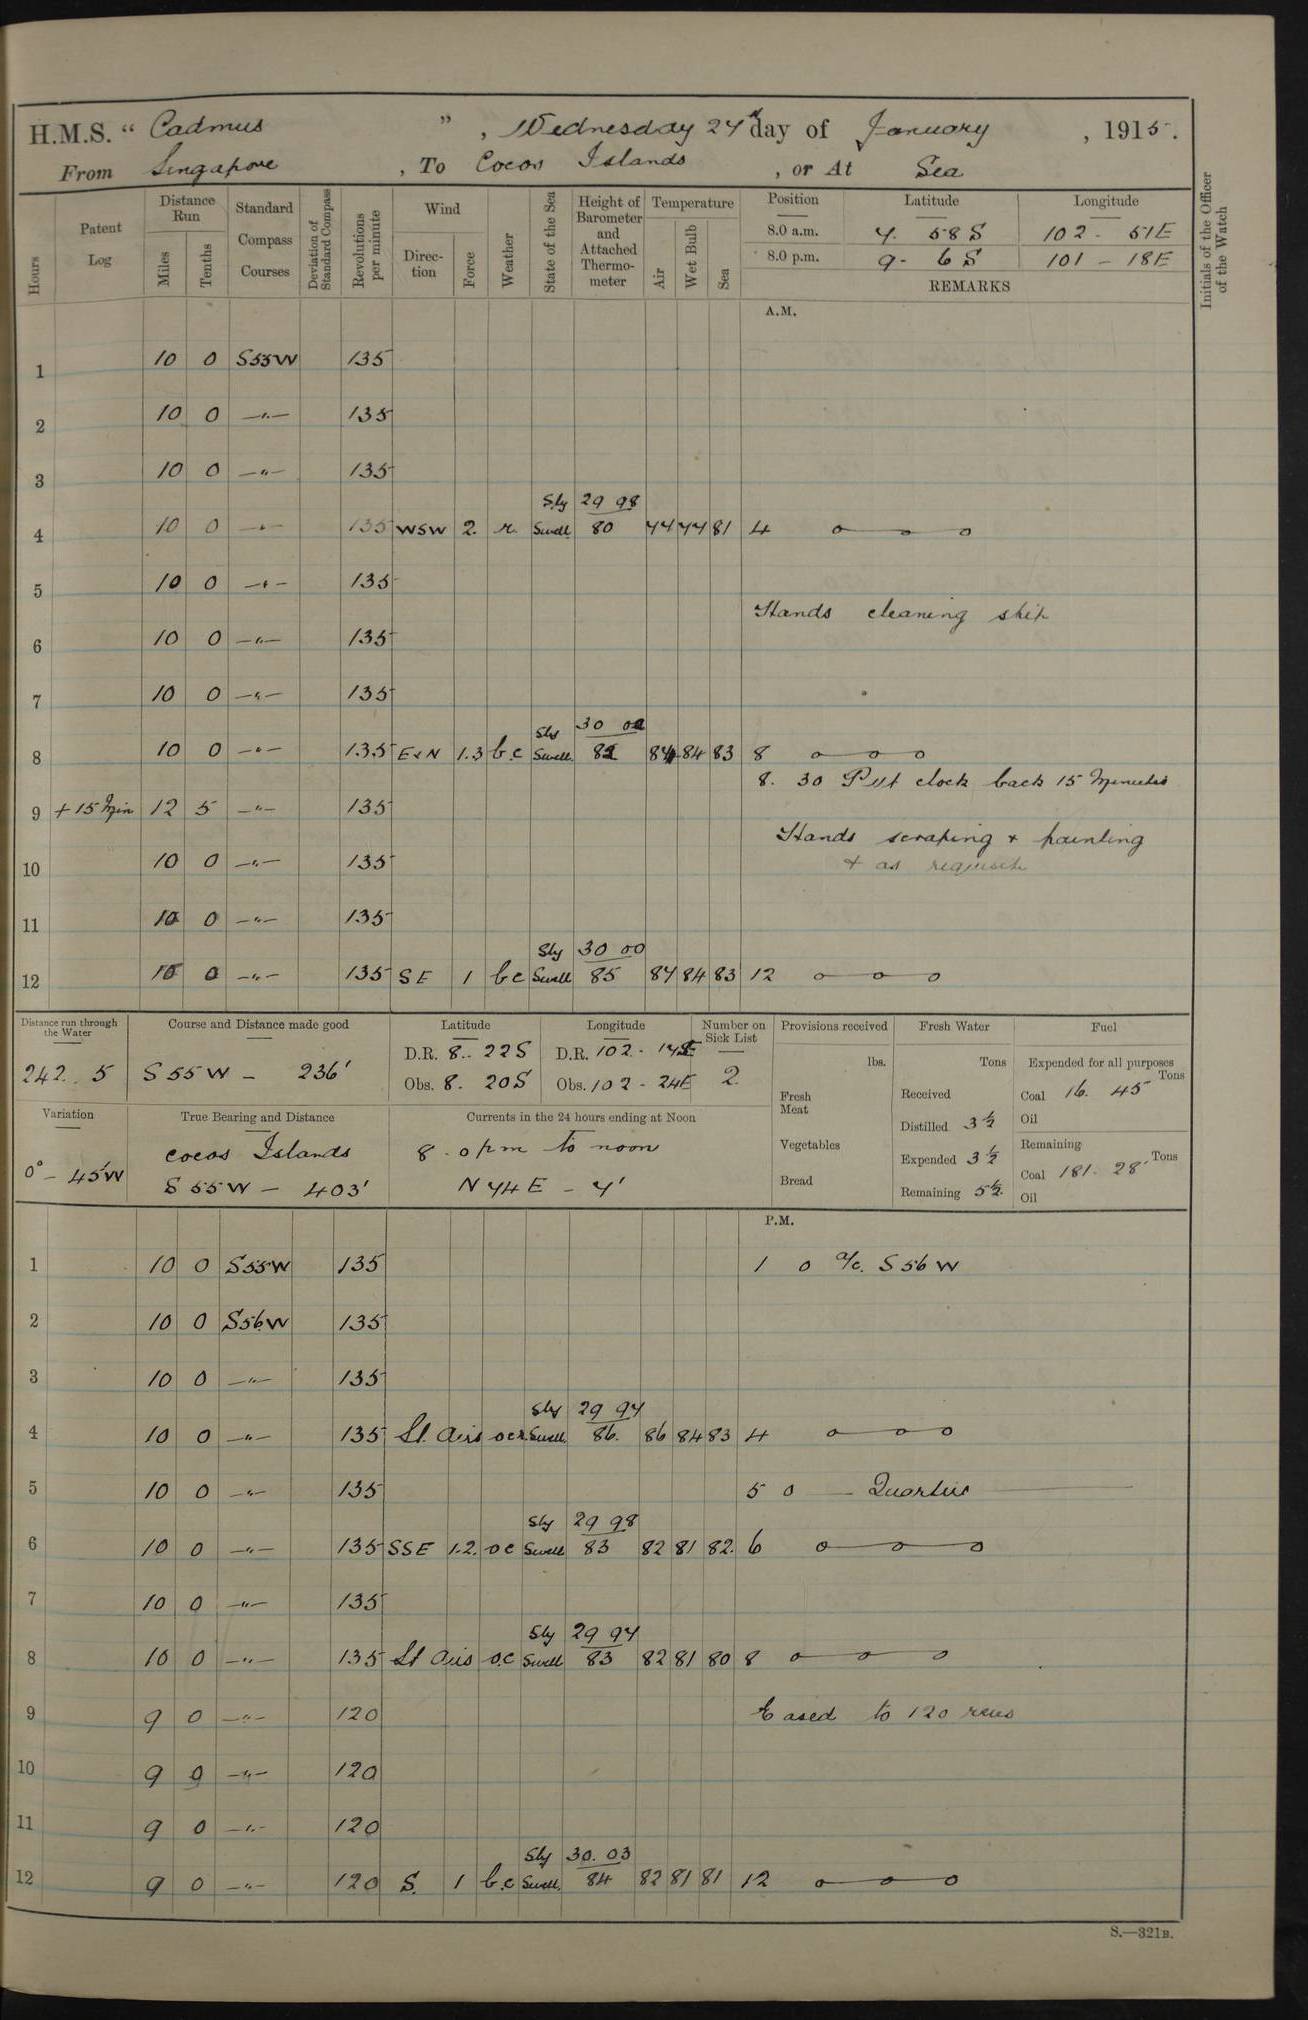 H.M.S. “ Cadmus ” , Wednesday 27th day of January , 1915.
From Singapore , To Cocos Islands , or At Sea
Hours
Patent Log
Distance Run
Miles
Tenths
Standard Compass Courses
Deviation of Standard Compass
Revolutions per minute
Wind
Direction
Force
Weather
State of the Sea
Height of Barometer and Attached Thermometer
Temperature
Air
Wet Bulb
Sea
Position Latitude Longitude
8.0 a.m. 7. 58 S 102 - 51 E
8.0 p.m. 9 - 6 S 101 - 18 E
REMARKS
Initials of the Officer of the Watch
A.M.
1 10 0 S55W 135
2 10 0 —"— 135
3 10 0 —"— 135
Sly 29 98
4 10 0 —"— 135 WSW 2. r. Swell 80 77 77 81 4 o—o—o
5 10 0 —"— 135
Hands cleaning ship
6 10 0 —"— 135
7 10 0 —"— 135
Sly 30 02
8 10 0 —"— 135 1.3 b.c Swell 84 84 83 8 o—o—o
8. 30 Put clock back 15 Minutes
9 + 15 Min 12 5 —"— 135
Hands scraping + painting
10 10 0 —"— 135 + as requisite
11 10 0 —"— 135
Sly 30 00
12 10 0 —"— 135 SE 1 bc Swell 85 87 84 83 12 o—o—o
Distance run through the Water
242. 5
Course and Distance made good
S 55 W – 236'
Latitude
D.R. 8.. 22 S
Obs. 8. 20 S
Longitude
D.R. 102 -
Obs. 102 - 24 E
Number on Sick List
2.
Provisions received
lbs.
Fresh Meat
Vegetables
Bread
Fresh Water
Tons
Received
Distilled 3 ½
Expended 3 ½
Remaining 5 ½
Fuel
Expended for all purposes
Tons
Coal 16. 45
Oil
Remaining
Tons
Coal 181. 28
Oil
Variation
0° – 45'W
True Bearing and Distance
Cocos Islands
S 55 W — 403'
Currents in the 24 hours ending at Noon
8 . 0 pm to noon
N 74 E – 7'
P.M.
1 10 0 S55W 135 1 0 a/c. S 56 W
2 10 0 S56W 135
3 10 0 —"— 135
Sly 29 94
4 10 0 —"— 135 Lt. Airs ocr. Swell 86. 86 84 83 4 o—o—o
5 10 0 —"— 135 5 0 — Quarters —
Sly 29 98
6 10 0 —"— 135 SSE 1.2. oc Swell 83 82 81 82. 6 o—o—o
7 10 0 —"— 135
Sly 29 94
8 10 0 —"— 135 Lt Airs o.c Swell 83 82 81 80 8 o—o—o
9 9 0 —"— 120 Eased to 120 revs
10 9 0 —"— 120
11 9 0 —"— 120
Sly 30. 03
12 9 0 —"— 120 S. 1 b.c Swell. 84 82 81 81 12 o—o—o
S.—321B.